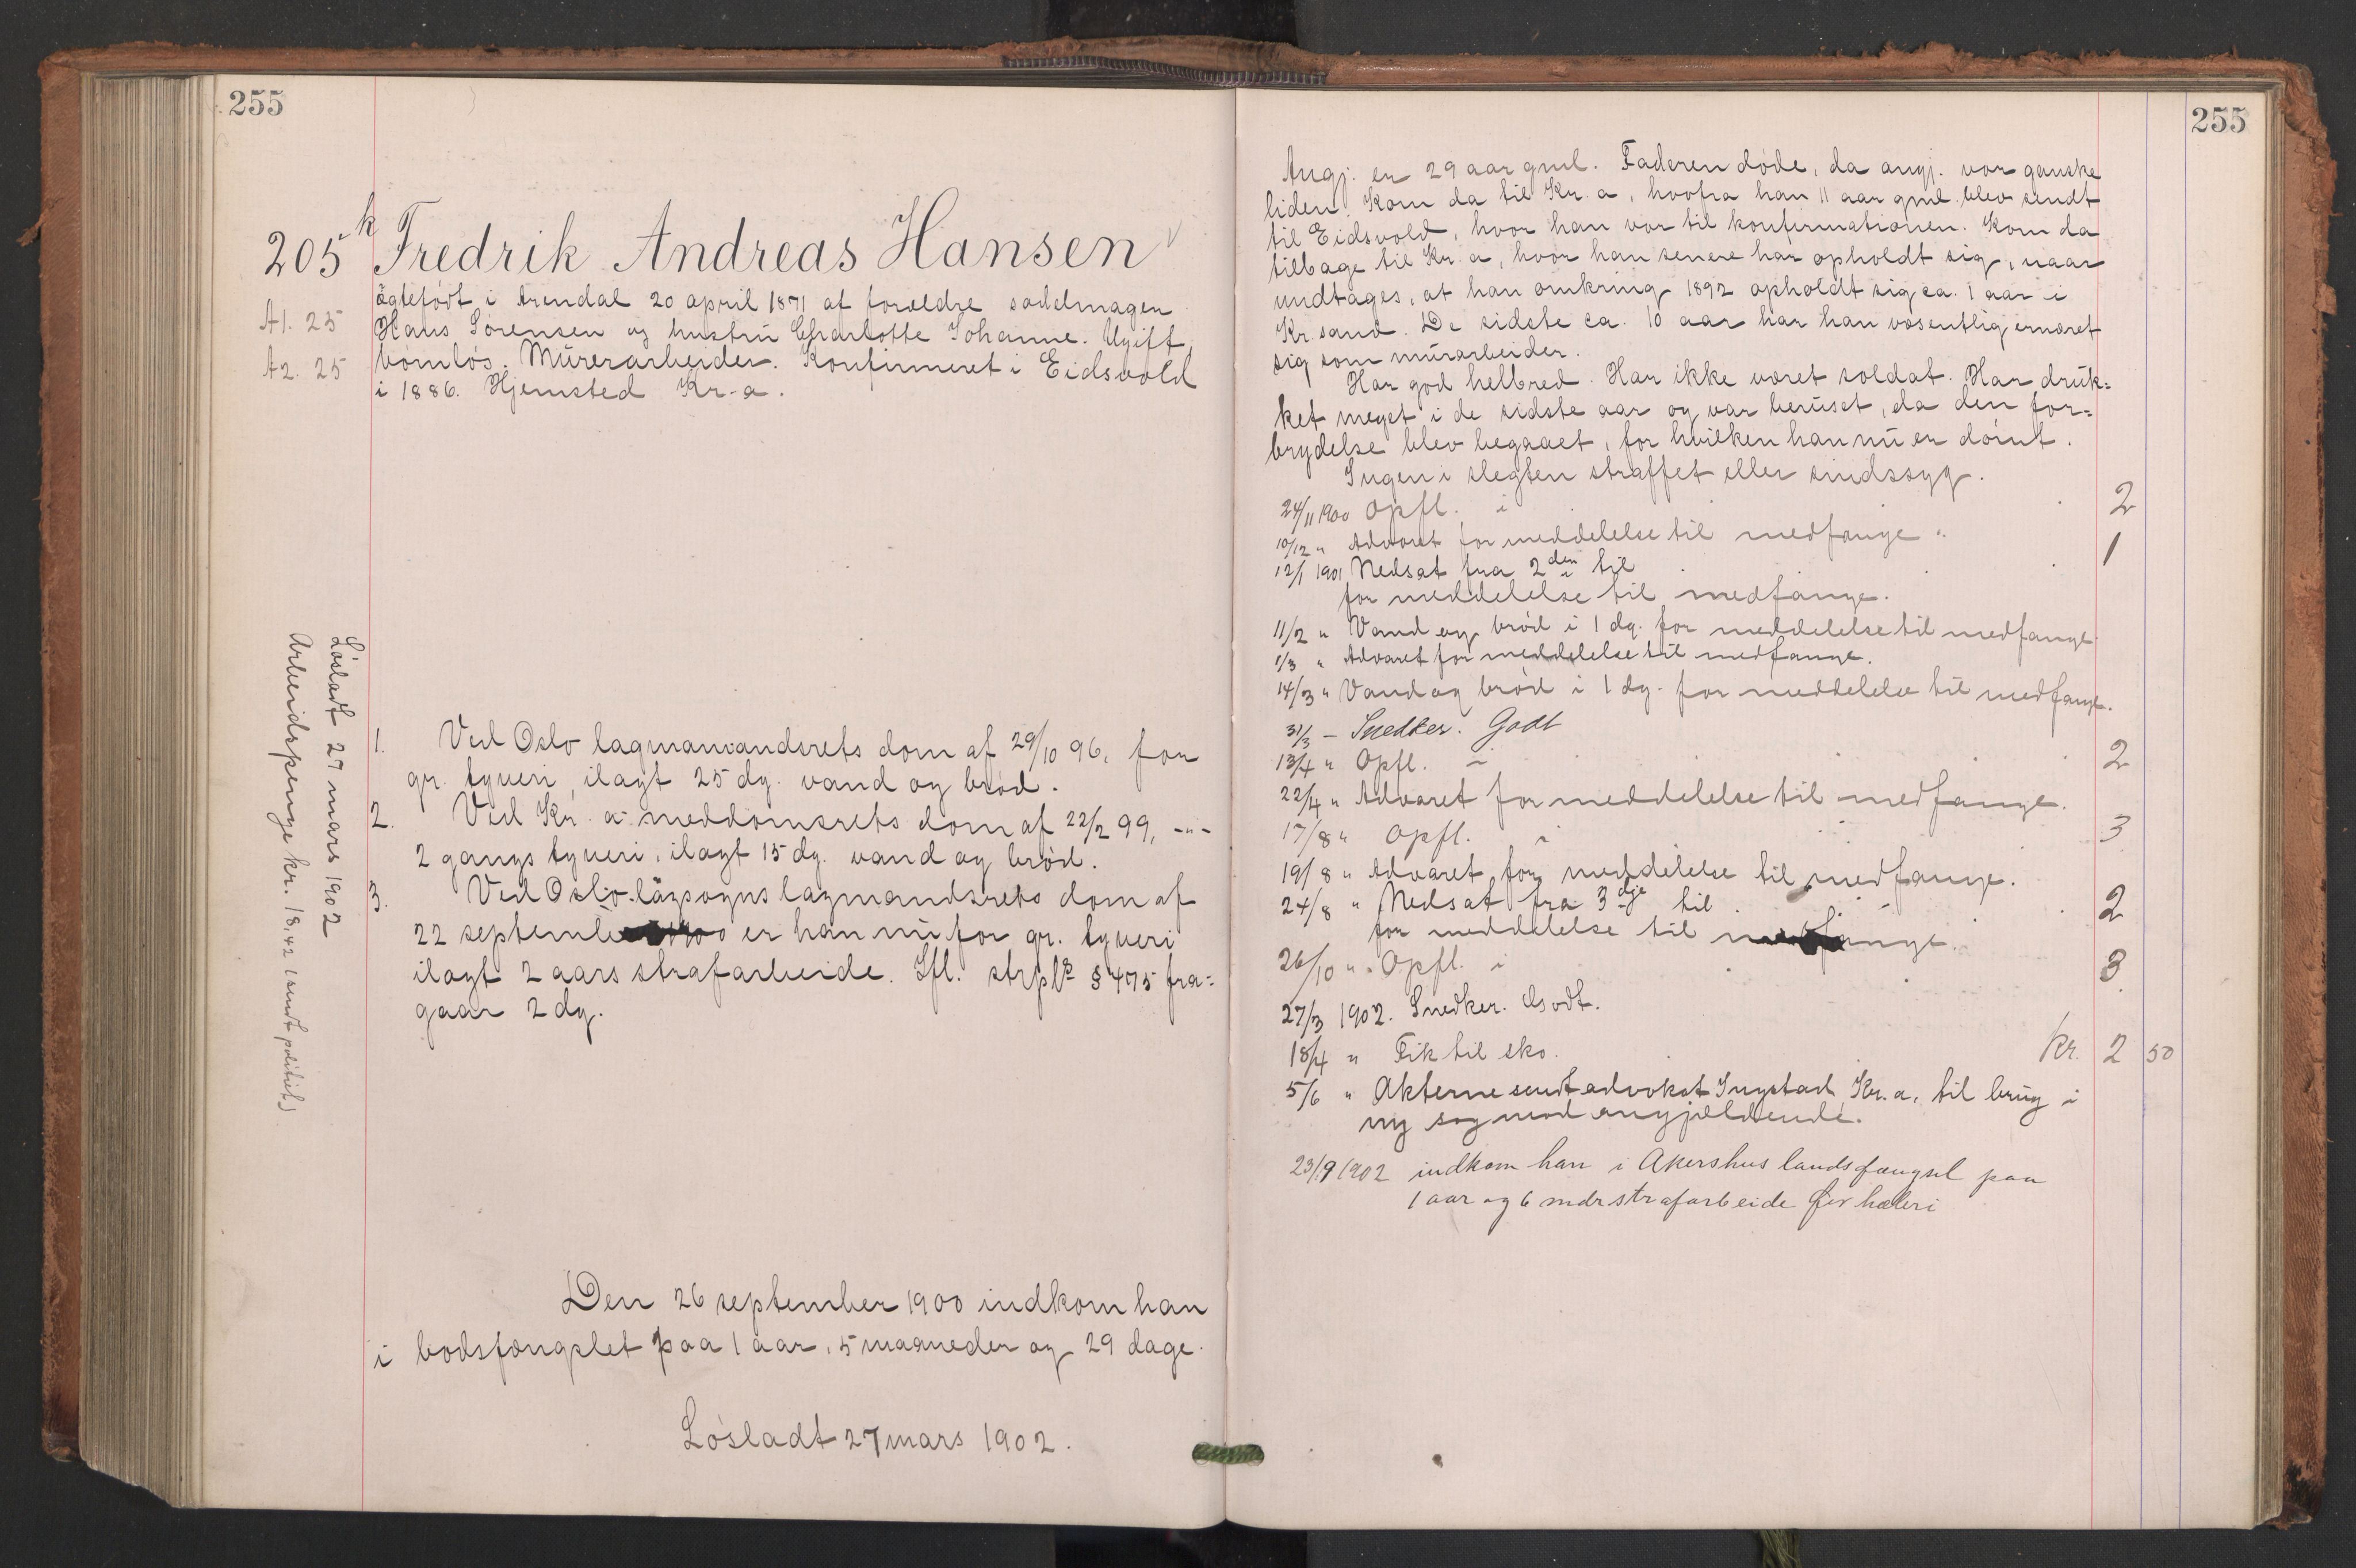 255
205 k Fredrik Andreas Hansen
ægtefødt i Arendal 20 april 1871 af forældre sadelmager
A1. 25
Hans Sørensen og hustru Charlotte Johanne. Ugift,
A2. 25
barnløs. Murerarbeider. Konfirmeret i Eidsvold
i 1886. Hjemsted Kr-a.
Løsladt 27 mars 1902
Arbeidspenge kr. 18,42 (sendt politiet)
1. Ved Oslo lagmandsrets dom af 29/10 96, for
gr. tyveri, ilagt 25 dg. vand og brød.
2. Ved Kr. a meddomsrets dom af 22/2 99, -"-
2 gangs tyveri, ilagt 15 dg. vand og brød.
3. Ved Oslo lagsogns lagmandsrets dom af
22 september 1900 er han nu for gr. tyveri
ilagt 2 aars strafarbeide. Ifl. strpl. § 475 fra-
gaar 2 dg.
Den 26 september 1900 indkom han
i bodsfængslet paa 1 aar, 5 maaneder og 29 dage.
Løsladt 27 mars 1902.
255
Angj. er 29 aar gml. Faderen døde, da angj. var ganske
liden. Kom da til Kr. a, hvofra han 11 aar gml. blev sendt
til Eidsvold, hvor han var til konfirmationen. Kom da
tilbage til Kr. a, hvor han senere har opholdt sig, naar
undtages, at han omkring 1892 opholdt sig ca. 1 aar i
Kr.sand. De sidste ca. 10 aar har han væsentlig ernæret
sig som murarbeider.
Har god helbred. Har ikke været soldat. Har druk=
ket meget i de sidste aar og var beruset, da den for=
brydelse blev begaaet, for hvilken han nu er dømt.
Ingen i slegten straffet eller sindssyg.
24/11 1900 Opfl. i 2
10/12 " Advaret for meddelelse til medfange.
12/1 1901 Nedsat fra 2den til 1
for meddelelse til medfange.
11/2 " Vand og brød i 1 dg. for meddelelse til medfange
1/3 " Advaret for meddelelse til medfange.
14/3 " Vand og brød i 1 dg. for meddelelse til medfange.
31/3 - Snedker. Godt
13/4 " Opfl. i 2
22/4 " Advaret for meddelelse til medfange.
17/8 " Opfl. i 3
19/8 " Advaret for meddelelse til medfange.
24/8 " Nedsat fra 3dje til 2
for meddelelse til medfange.
26/10 " Opfl. i 3
27/3 1902. Snedker. Godt.
18/4 " Fik til sko. Kr. 2 50
5/6 " Akterne sendt advokat Ingstad, Kr. a, til brug i
ny sag mod angjældende.
23/9 1902 indkom han i Akershus landsfængsel paa
1 aar og 6 mdr strafarbeide for hæleri